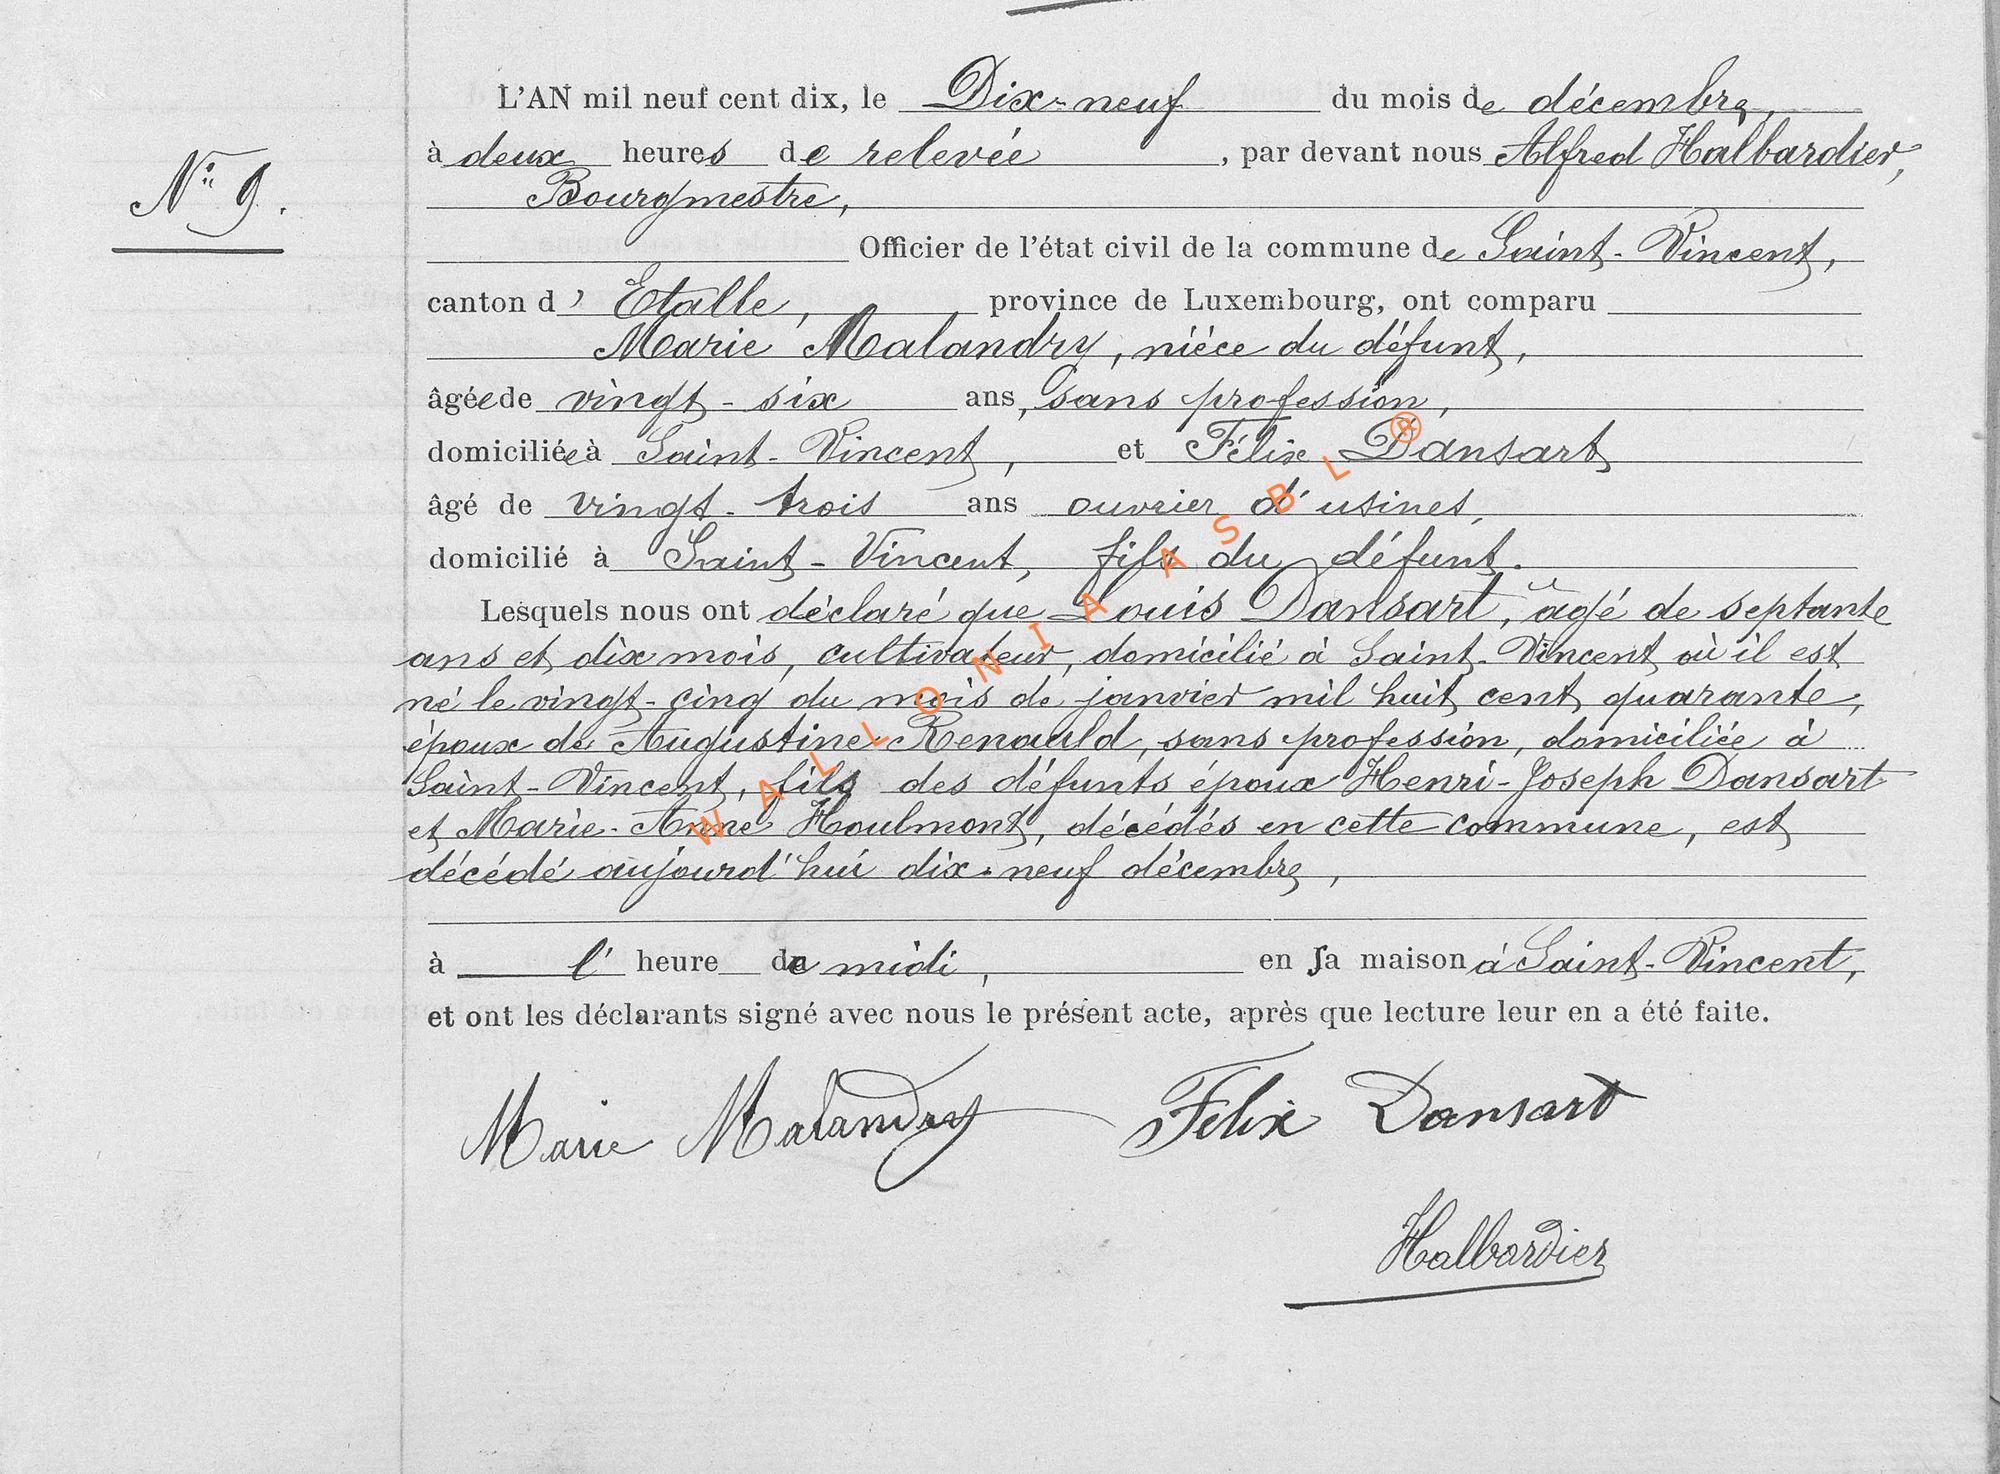 L'AN mil neuf cent dix, le Dix-neuf du mois de décembre,
à deux heures de relevée, par devant nous Alfred Halbardier,
N° 9.
Bourgmestre,
Officier de l'état civil de la commune de Saint-Vincent,
canton d'Etalle, province de Luxembourg, ont comparu
Marie Malandry, nièce du défunt,
âgée de vingt-six ans, sans profession,
domiciliée à Saint-Vincent, et Félix Dansart
âgé de vingt-trois ans ouvrier d'usines,
domicilié à Saint-Vincent, fils du défunt.
Lesquels nous ont déclaré que Louis Dansart, âgé de septante
ans et dix mois, cultivateur, domicilié à Saint-Vincent où il est
né le vingt-cinq du mois de janvier mil huit cent quarante,
époux de Augustine Renauld, sans profession, domiciliée à
Saint-Vincent, fils des défunts époux Henri-Joseph Dansart
et Marie-Anne Houlmont, décédés en cette commune, est
décédé aujourd'hui dix-neuf décembre,
à l'heure de midi, en sa maison à Saint-Vincent,
et ont les déclarants signé avec nous le présent acte, après que lecture leur en a été faite.
Marie Malandry Félix Dansart
Halbardier
WALLONIA ASBL ®